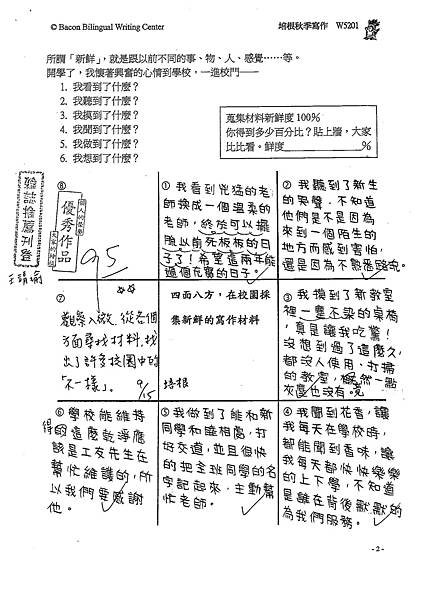 © Bacon Bilingual Writing Center
培根秋季寫作 W5201
所謂「新鮮」，就是跟以前不同的事、物、人、感覺……等。
開學了，我懷著興奮的心情到學校，一進校門──
1. 我看到了什麼？
2. 我聽到了什麼？
3. 我摸到了什麼？
4. 我聞到了什麼？
5. 我做到了什麼？
6. 我想到了什麼？
蒐集材料新鮮度 100%
你得到多少百分比？貼上牆，大家
比比看。鮮度____________%
⑧
優秀作品
95
①我看到兇猛的老
師換成一個溫柔的
老師，終於可以擺
脫以前死板板的日
子了！希望這兩年能
過個充實的日子。
②我聽到了新生
的哭聲，不知道
他們是不是因為
來到一個陌生的
地方而感到害怕，
還是因為不熟悉路況。
⑦
觀察入微，從各個
方面尋找材料，找
出了許多校園中的
「不一樣」。 9/15
四面八方，在校園採
集新鮮的寫作材料
培根
③我摸到了新教室
裡一塵不染的桌椅
，真是讓我吃驚！
沒想到過了這麼久，
都沒人使用、打掃
的教室，竟然一點
灰塵也沒有。
⑥學校能維持
得這麼乾淨應
該是工友先生在
幫忙維護的，所
以我們要感謝
他。
⑤我做到了能和新
同學和睦相處，打
好交道，並且很快
的把全班同學的名
字記起來，主動幫
忙老師。
④我聞到花香，讓
我每天在學校時，
都能聞到香味，讓
我每天都快快樂樂
的上下學，不知道
是誰在背後默默的
為我們服務。
- 2 -